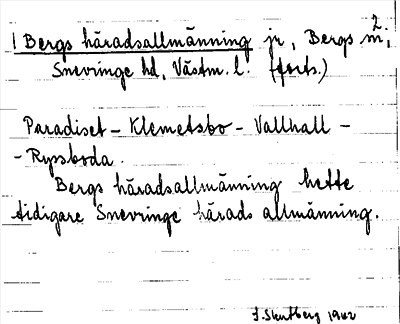 1 Bergs häradsallmänning jr, Bergs m, 2
Snevringe hd, Västm. l. (forts.)
Paradiset - Klemetsbo - Vallhall -
- Ryssboda.
Bergs häradsallmänning hette
tidigare Snevringe härads allmänning.
1942